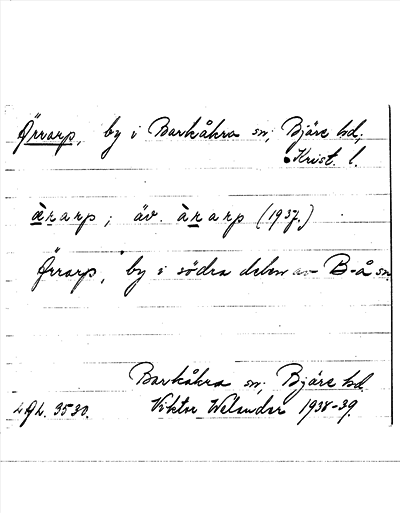 Örrarp, by i Barkåkra sn; Bjäre hd;
Krist. l.
àrarp; äv. àrarp (1937.)
Örrarp, by i södra delen av B-å sn
Barkåkra sn; Bjäre hd.
Viktor Welander 1938-39.
3530.